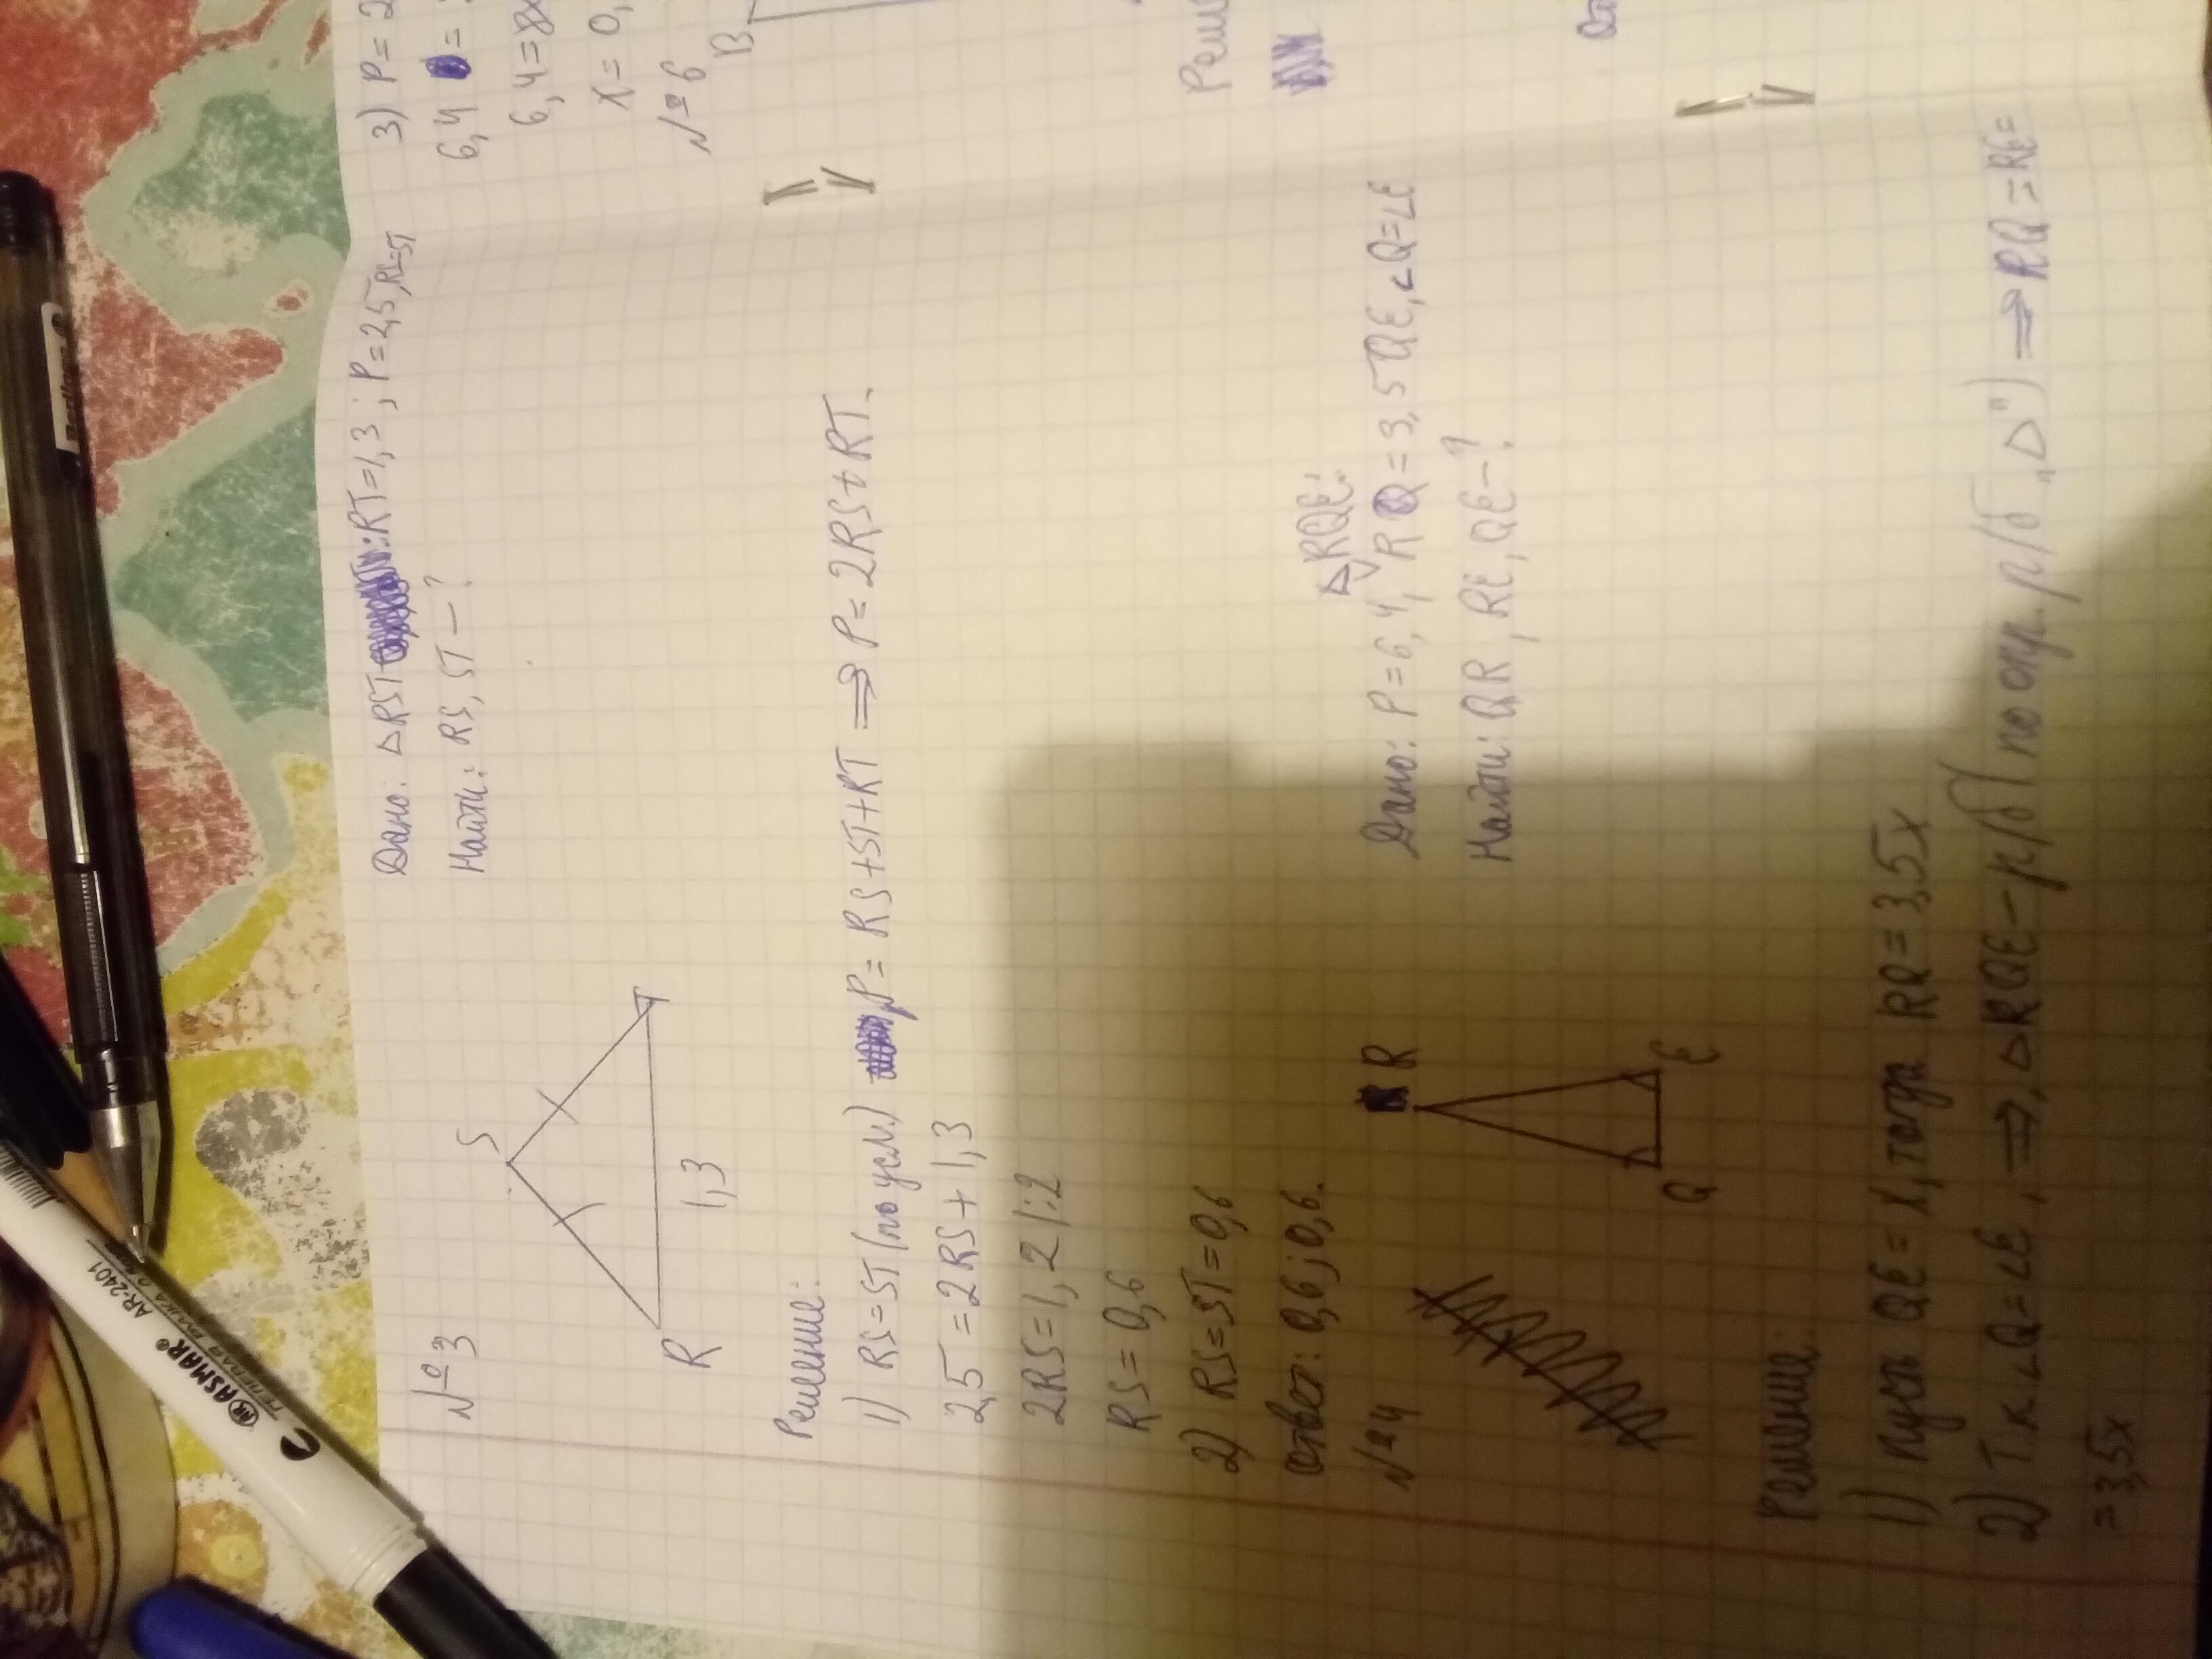 №3
S
R
T
1,3
Дано: △RST: RT=1,3; P=2,5, RS=ST
Найти: RS, ST – ?
Решение:
1) RS=ST (по усл.) P= RS+ST+RT ⟹ P=2RS+RT.
2,5=2RS+1,3
2RS=1,2 |:2
RS=0,6
2) RS=ST=0,6
Ответ: 0,6; 0,6.
№4
R
Q
E
△RQE:
Дано: P=6,4, RQ=3,5QE, ∠Q=∠E
Найти: QR, RE, QE – ?
Решение:
1) Пусть QE=x, тогда RQ=3,5x
2) Т.к. ∠Q=∠E, ⟹ △RQE – р/б (по опр. р/б „△") ⟹ RQ=RE=
=3,5x
3) P=2
6,4 =
6,4=8x
x=0,
№6
B
Реш
ASMAR
AR-2401
Berlingo